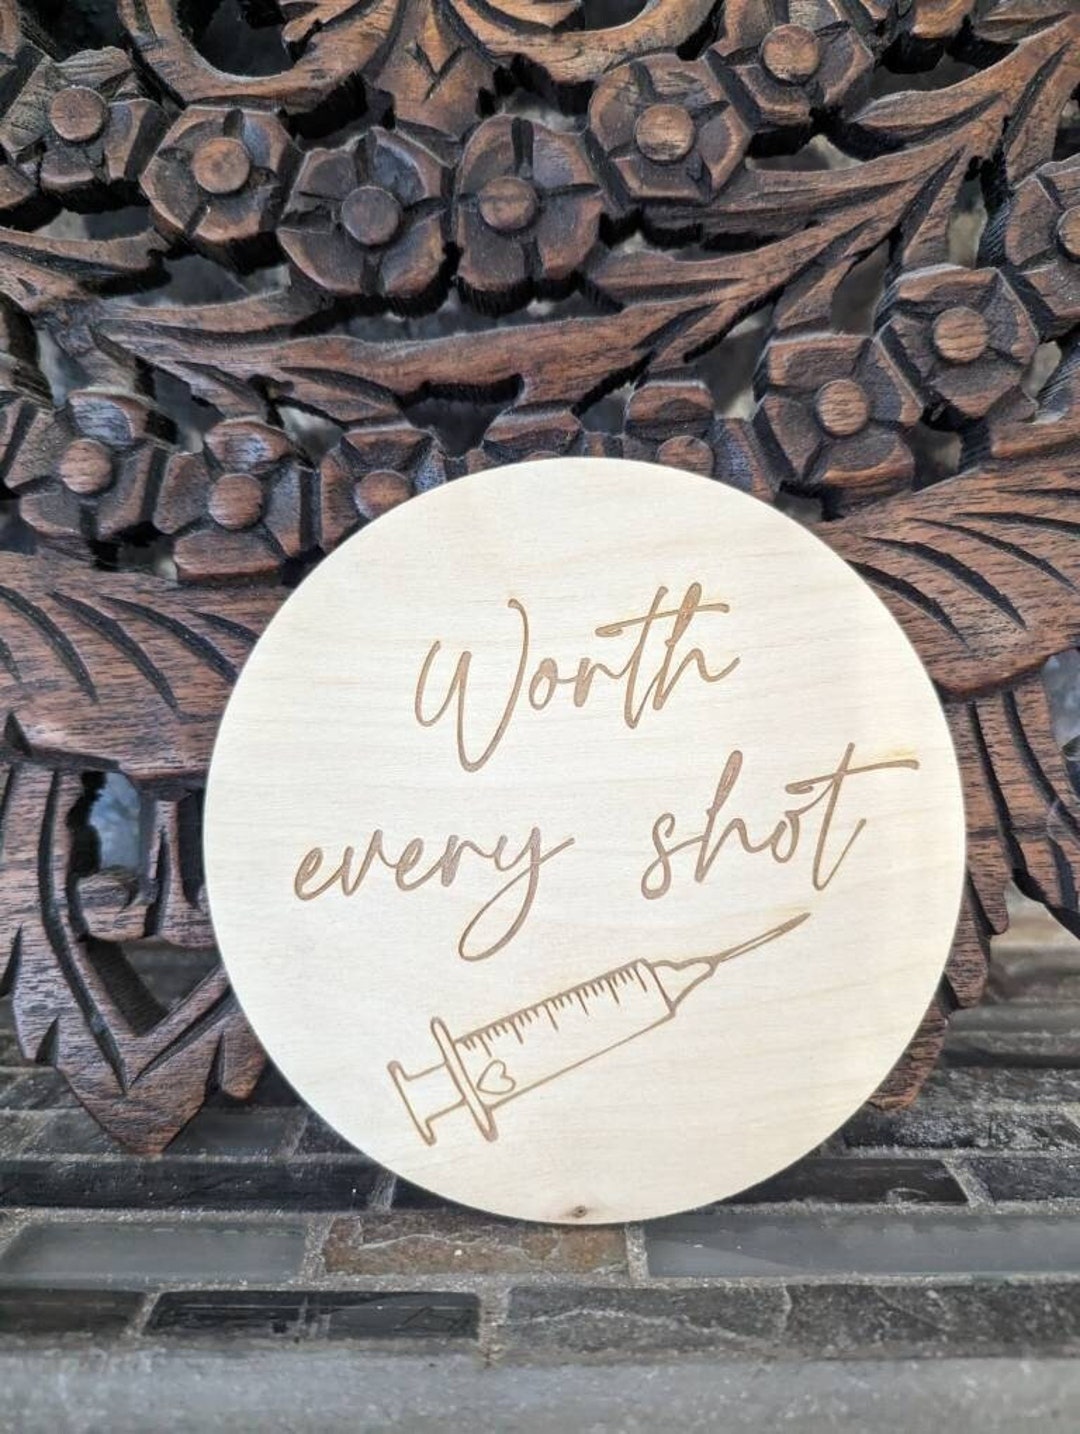 Worth
every shot